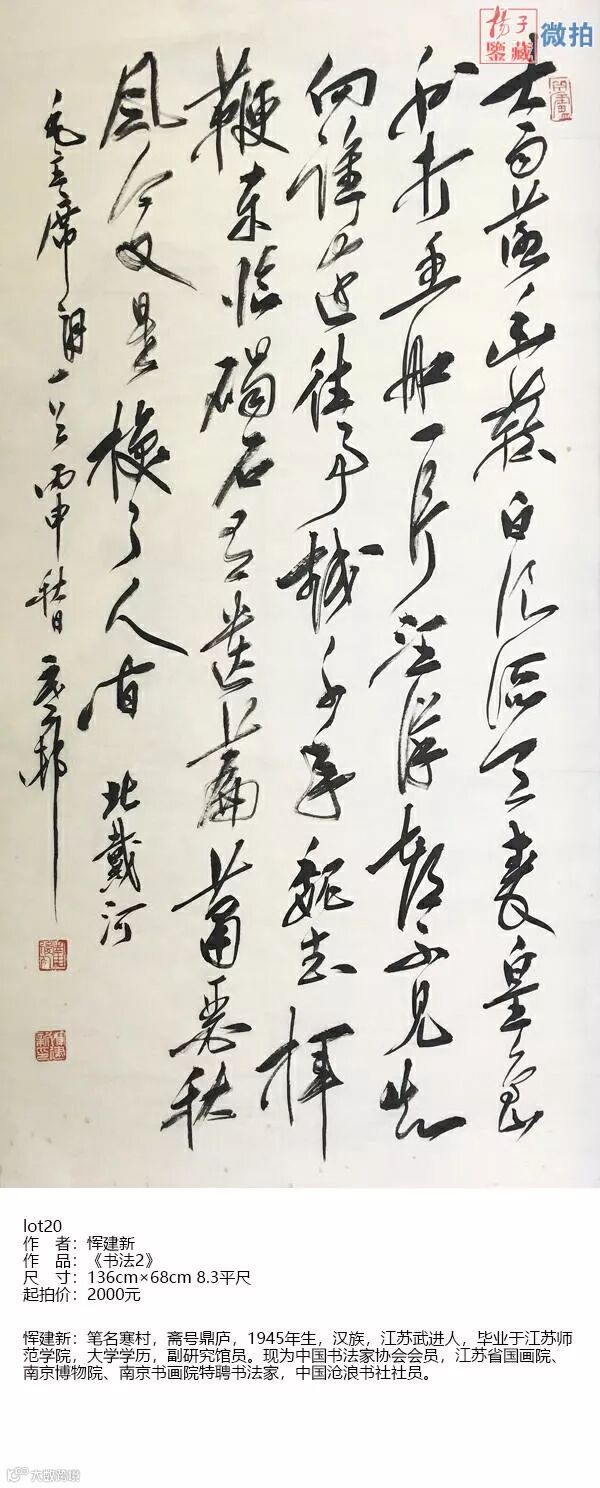 楊子
鑒藏
微拍
大雨落幽燕白浪滔天秦皇島
外打魚船一片汪洋都不見知
向誰邊往事越千年魏武揮
鞭東臨碣石有遺篇蕭瑟秋
風今又是換了人間 北戴河
毛主席詞一首丙申秋日寒邨
lot20
作 者：恽建新
作 品：《书法2》
尺 寸：136cm×68cm 8.3平尺
起拍价：2000元
恽建新：笔名寒村，斋号鼎庐，1945年生，汉族，江苏武进人，毕业于江苏师
范学院，大学学历，副研究馆员。现为中国书法家协会会员，江苏省国画院、
南京博物院、南京书画院特聘书法家，中国沧浪书社社员。
大数跨境